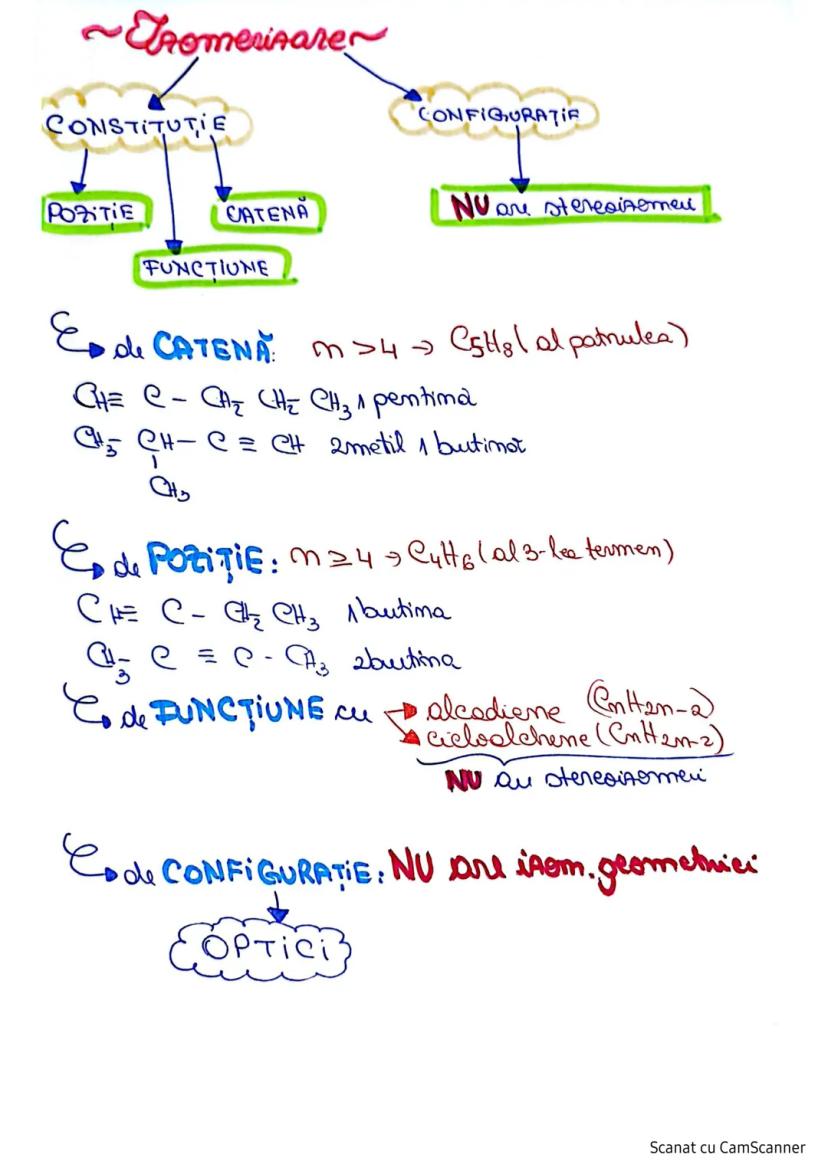 ~Izomerizare~
CONSTITUȚIE
CONFIGURAȚIE
POZIȚIE
CATENĂ
NU are stereoizomeri
FUNCȚIUNE
de CATENĂ: n >4 → C5H8 (al patrulea)
CH≡ C - CH2 CH2 CH3 1 pentină
CH3- CH- C ≡ CH 2metil 1 butinăt
CH3
de POZIȚIE: n ≥ 4 → C4H6 (al 3-lea termen)
CH≡ C - CH2 CH3 1butina
CH3- C ≡ C - CH3 2butina
de FUNCȚIUNE cu → alcadiene (CnH2n-2)
cicloalchene (CnH2n-2)
NU au stereoizomeri
de CONFIGURAȚIE: NU are izom. geometrici
OPTICI
Scanat cu CamScanner